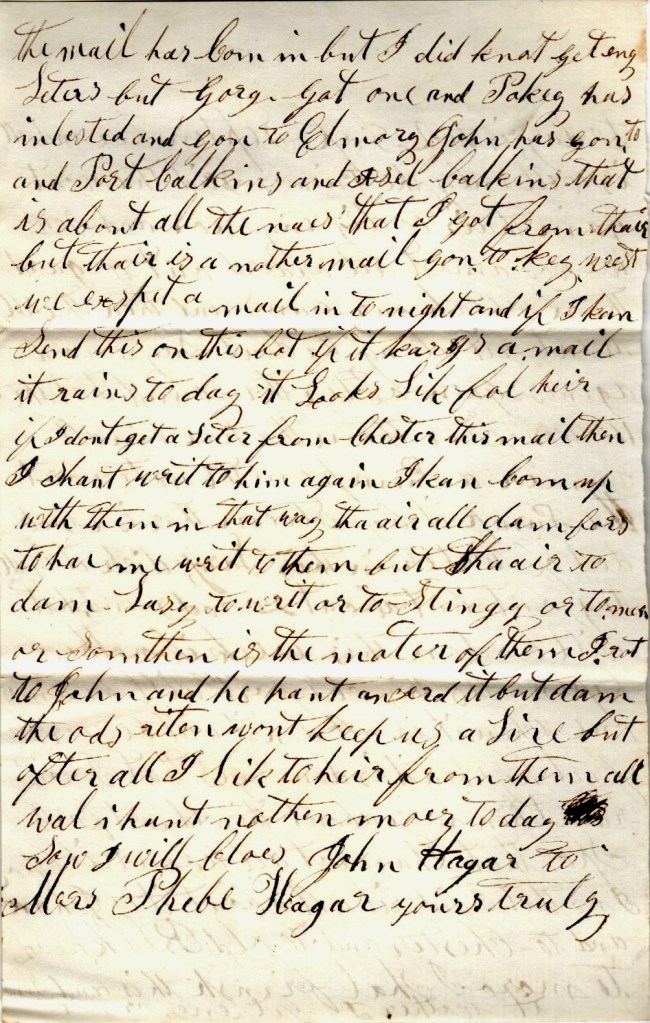 the mail has Com in but I did knot get eny
Leters but Gorg. got one and Pokey has
inlested and gon to Elmory John has gon to
and Port Calkins and Asel Calkins that
is about all the naes that I got from thair
but thair is a nother mail gon to key west
we exspit a mail in to night and if I kan
Send this on this bot if it karys a mail
it rains to day it Looks Lik fol heir
if I dont get a Leter from Chester this mail then
I shant writ to him again I kan Com up
with them in that way tha air all dam fors
to hae me writ to them but tha air to
dam Lasy to writ or to Stingy or to men
or Somthen is the mater of them I rot
to John and he hant ancerd it but dam
the ods riten wont keep us a Live but
after all I lik to heir from them all
wal i hant nothen moer to day
Sow I will Cloes John Hagar to
Mers Phebe Hagar yours truly